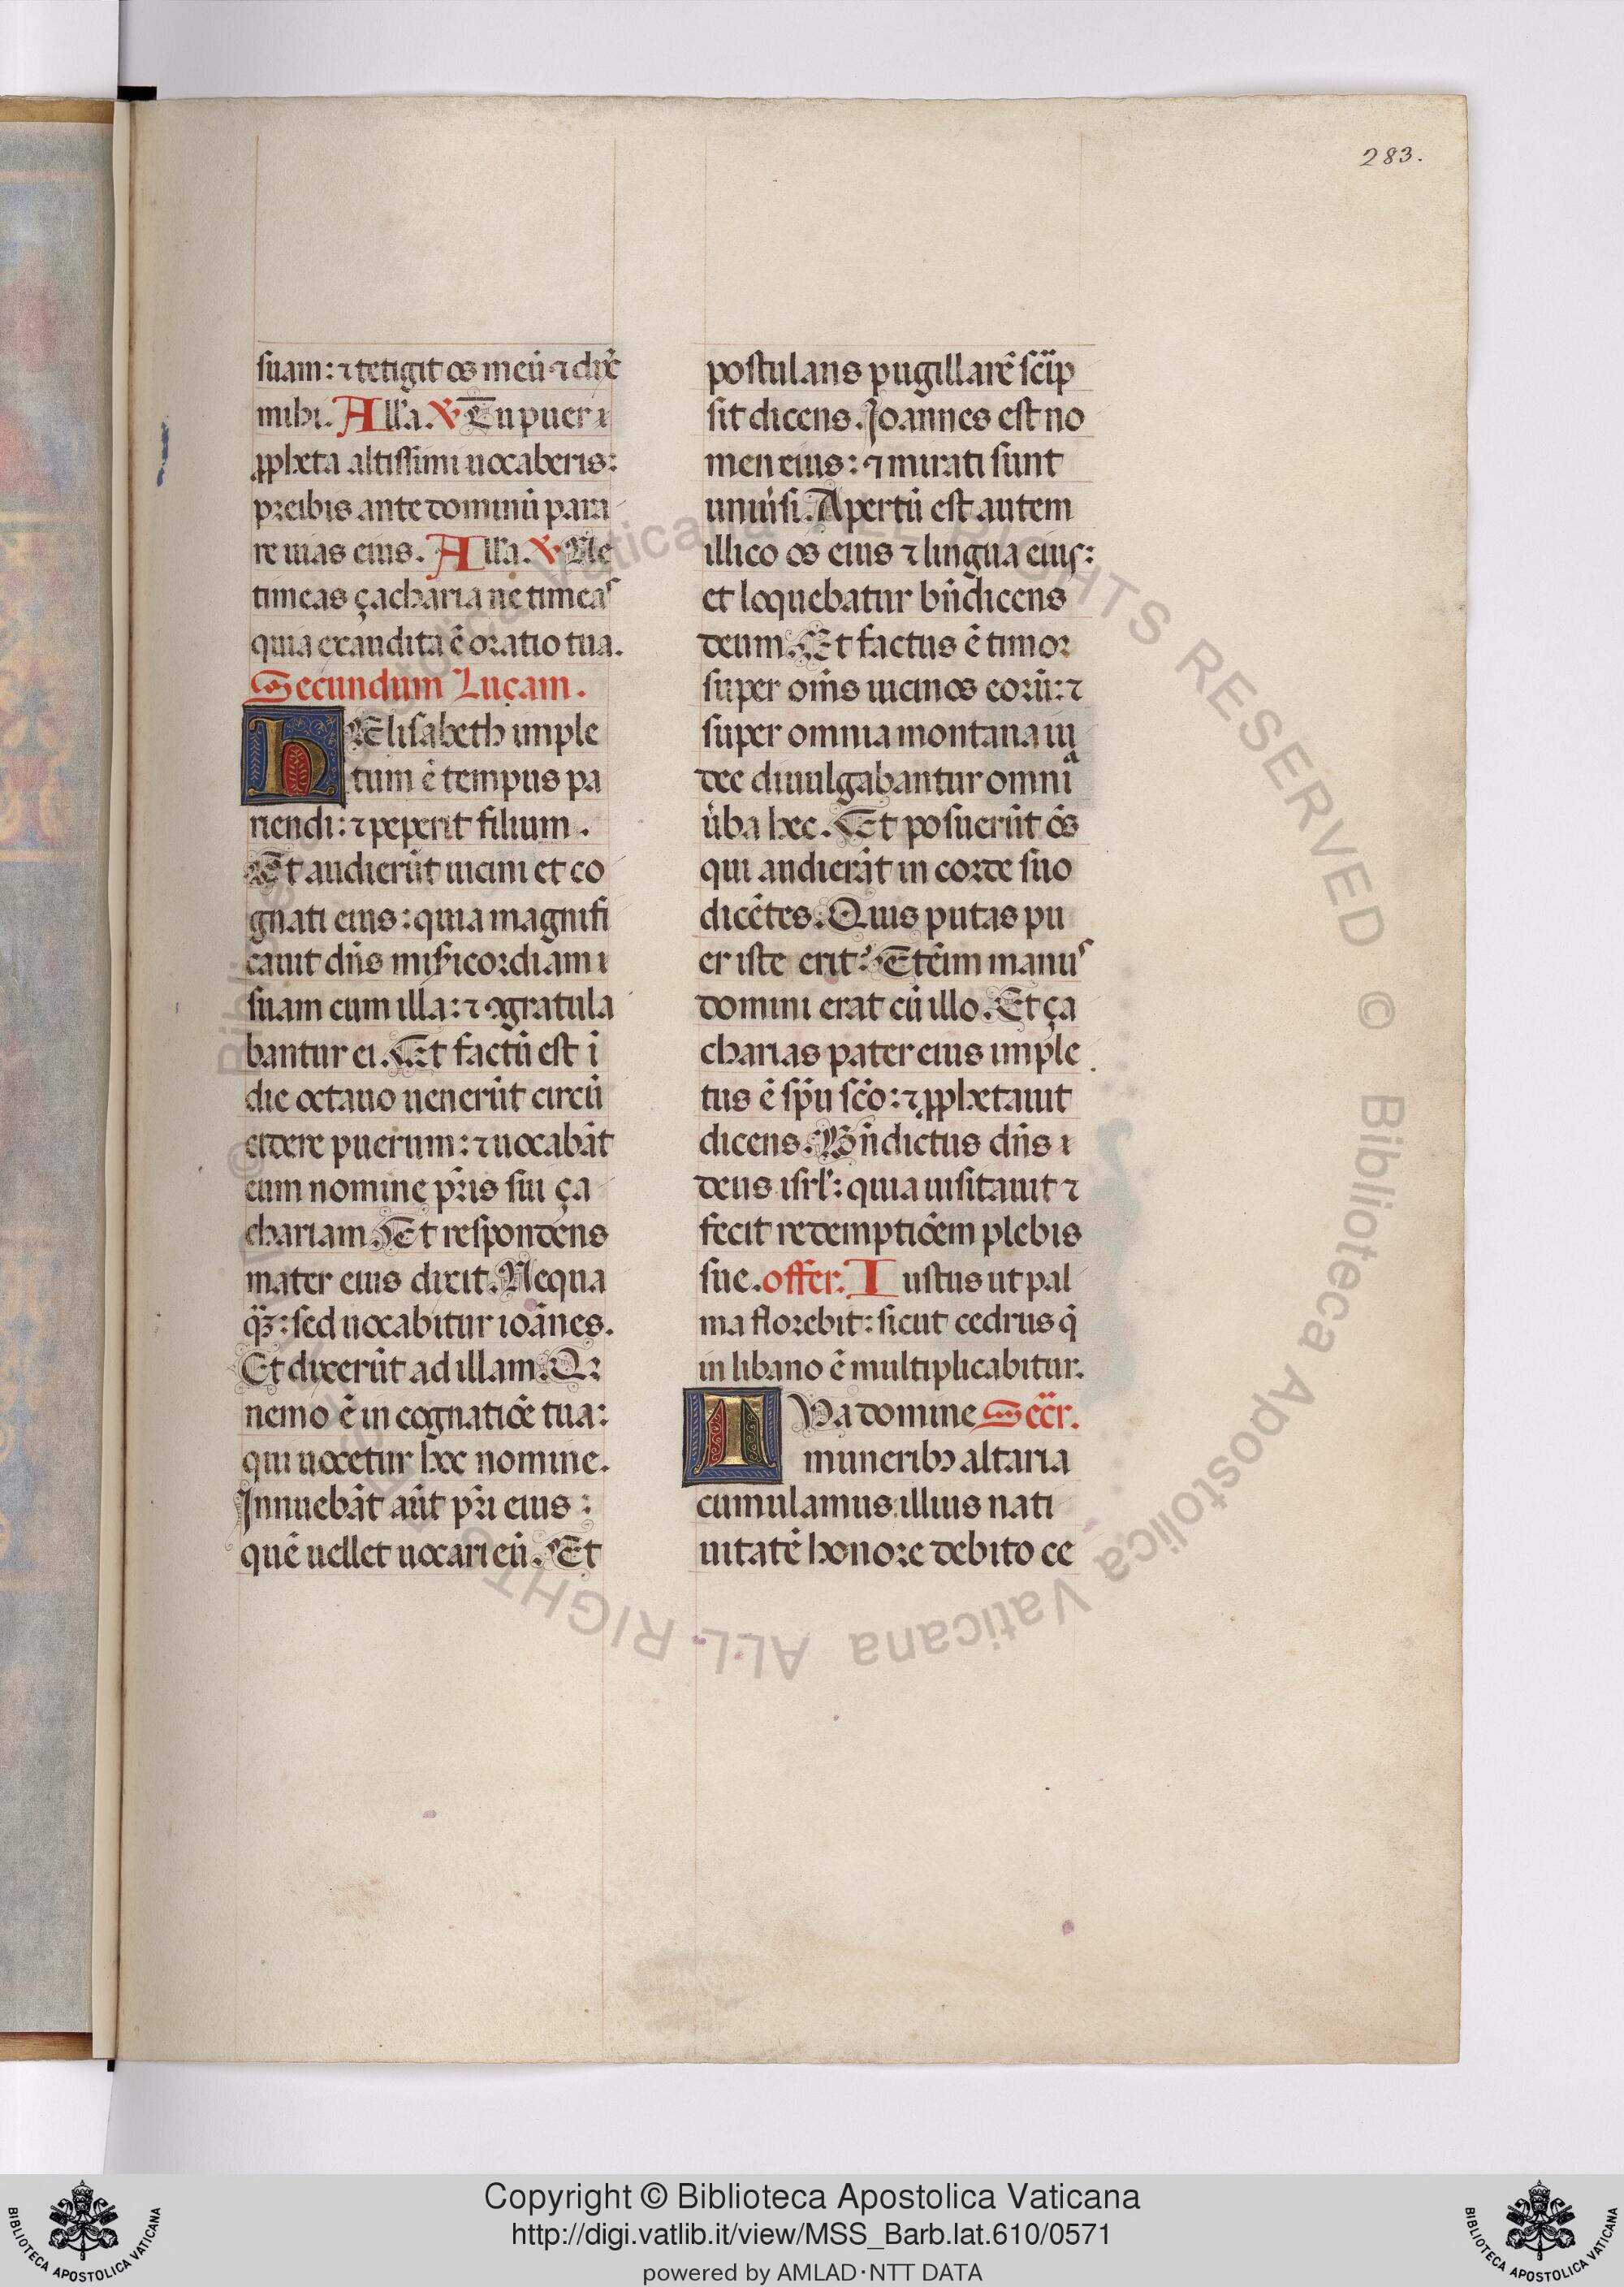 283.
suam: ⁊ tetigit os meū ⁊ dix̄
mihi. All'a. ℣ Tu puer ı
ꝓpheta altissimi uocaberis:
preibis ante dominū para
re uias eius. All'a. ℣ Ne
timeas çacharia ne timeas
quia exaudita ē oratio tua.
Secundum Luçam.
h Elisabeth imple
tum ē tempus pa
riendi: ⁊ peperit filium.
Et audierūt uicini et co
gnati eius: quia magnifi
cauit dn̄s mis̄icordiam ı
suam cum illa: ⁊ ꝯgratula
bantur ei. Et factū est ī
die octauo uenerūt circū
cidere puerum: ⁊ uocabāt
eum nomine pr̄is sui ça
chariam. Et respondens
mater eius dixit. Nequa
qꝫ: sed uocabitur ioānes.
Et dixerūt ad illam. Qꝛ
nemo ē in cognatiōe tua:
qui uocetur hoc nomine.
Innuebāt aūt pr̄i eius:
quē uellet uocari eū. Et
postulans pugillarē sc̄ip
sit dicens. Joannes est no
men eius: ⁊ mirati sunt
uniu̓si. Apertū est autem
illico os eius ⁊ lingua eius:
et loquebatur bn̄dicens
deum. Et factus ē timor
super om̄s uicinos eorū: ⁊
super omnia montana iu
dee diuulgabantur omnia
u̓ba hec. Et posuerūt ōs
qui audierāt in corde suo
dicētes. Quis putas pu
er iste erit? Etēim manus
domini erat cū illo. Et ça
charias pater eius imple
tus ē sp̄u sc̄o: ⁊ ꝓphetauit
dicens. Bn̄dictus dn̄s ı
deus isrl̓: quia uisitauit ⁊
fecit redemptiōem plebis
sue. offer. Iustus ut pal
ma florebit: sicut cedrus q̄
in libano ē multiplicabitur.
T Ua domine Sec̄r.
muneribꝰ altaria
cumulamus illius nati
uitatē honore debito ce
Copyright © Biblioteca Apostolica Vaticana
http://digi.vatlib.it/view/MSS_Barb.lat.610/0571
powered by AMLAD·NTT DATA
BIBLIOTECA APOSTOLICA VATICANA
BIBLIOTECA APOSTOLICA VATICANA
© Biblioteca Apostolica Vaticana ALL RIGHTS RESERVED © Biblioteca Apostolica Vaticana ALL RIGHTS RESERVED